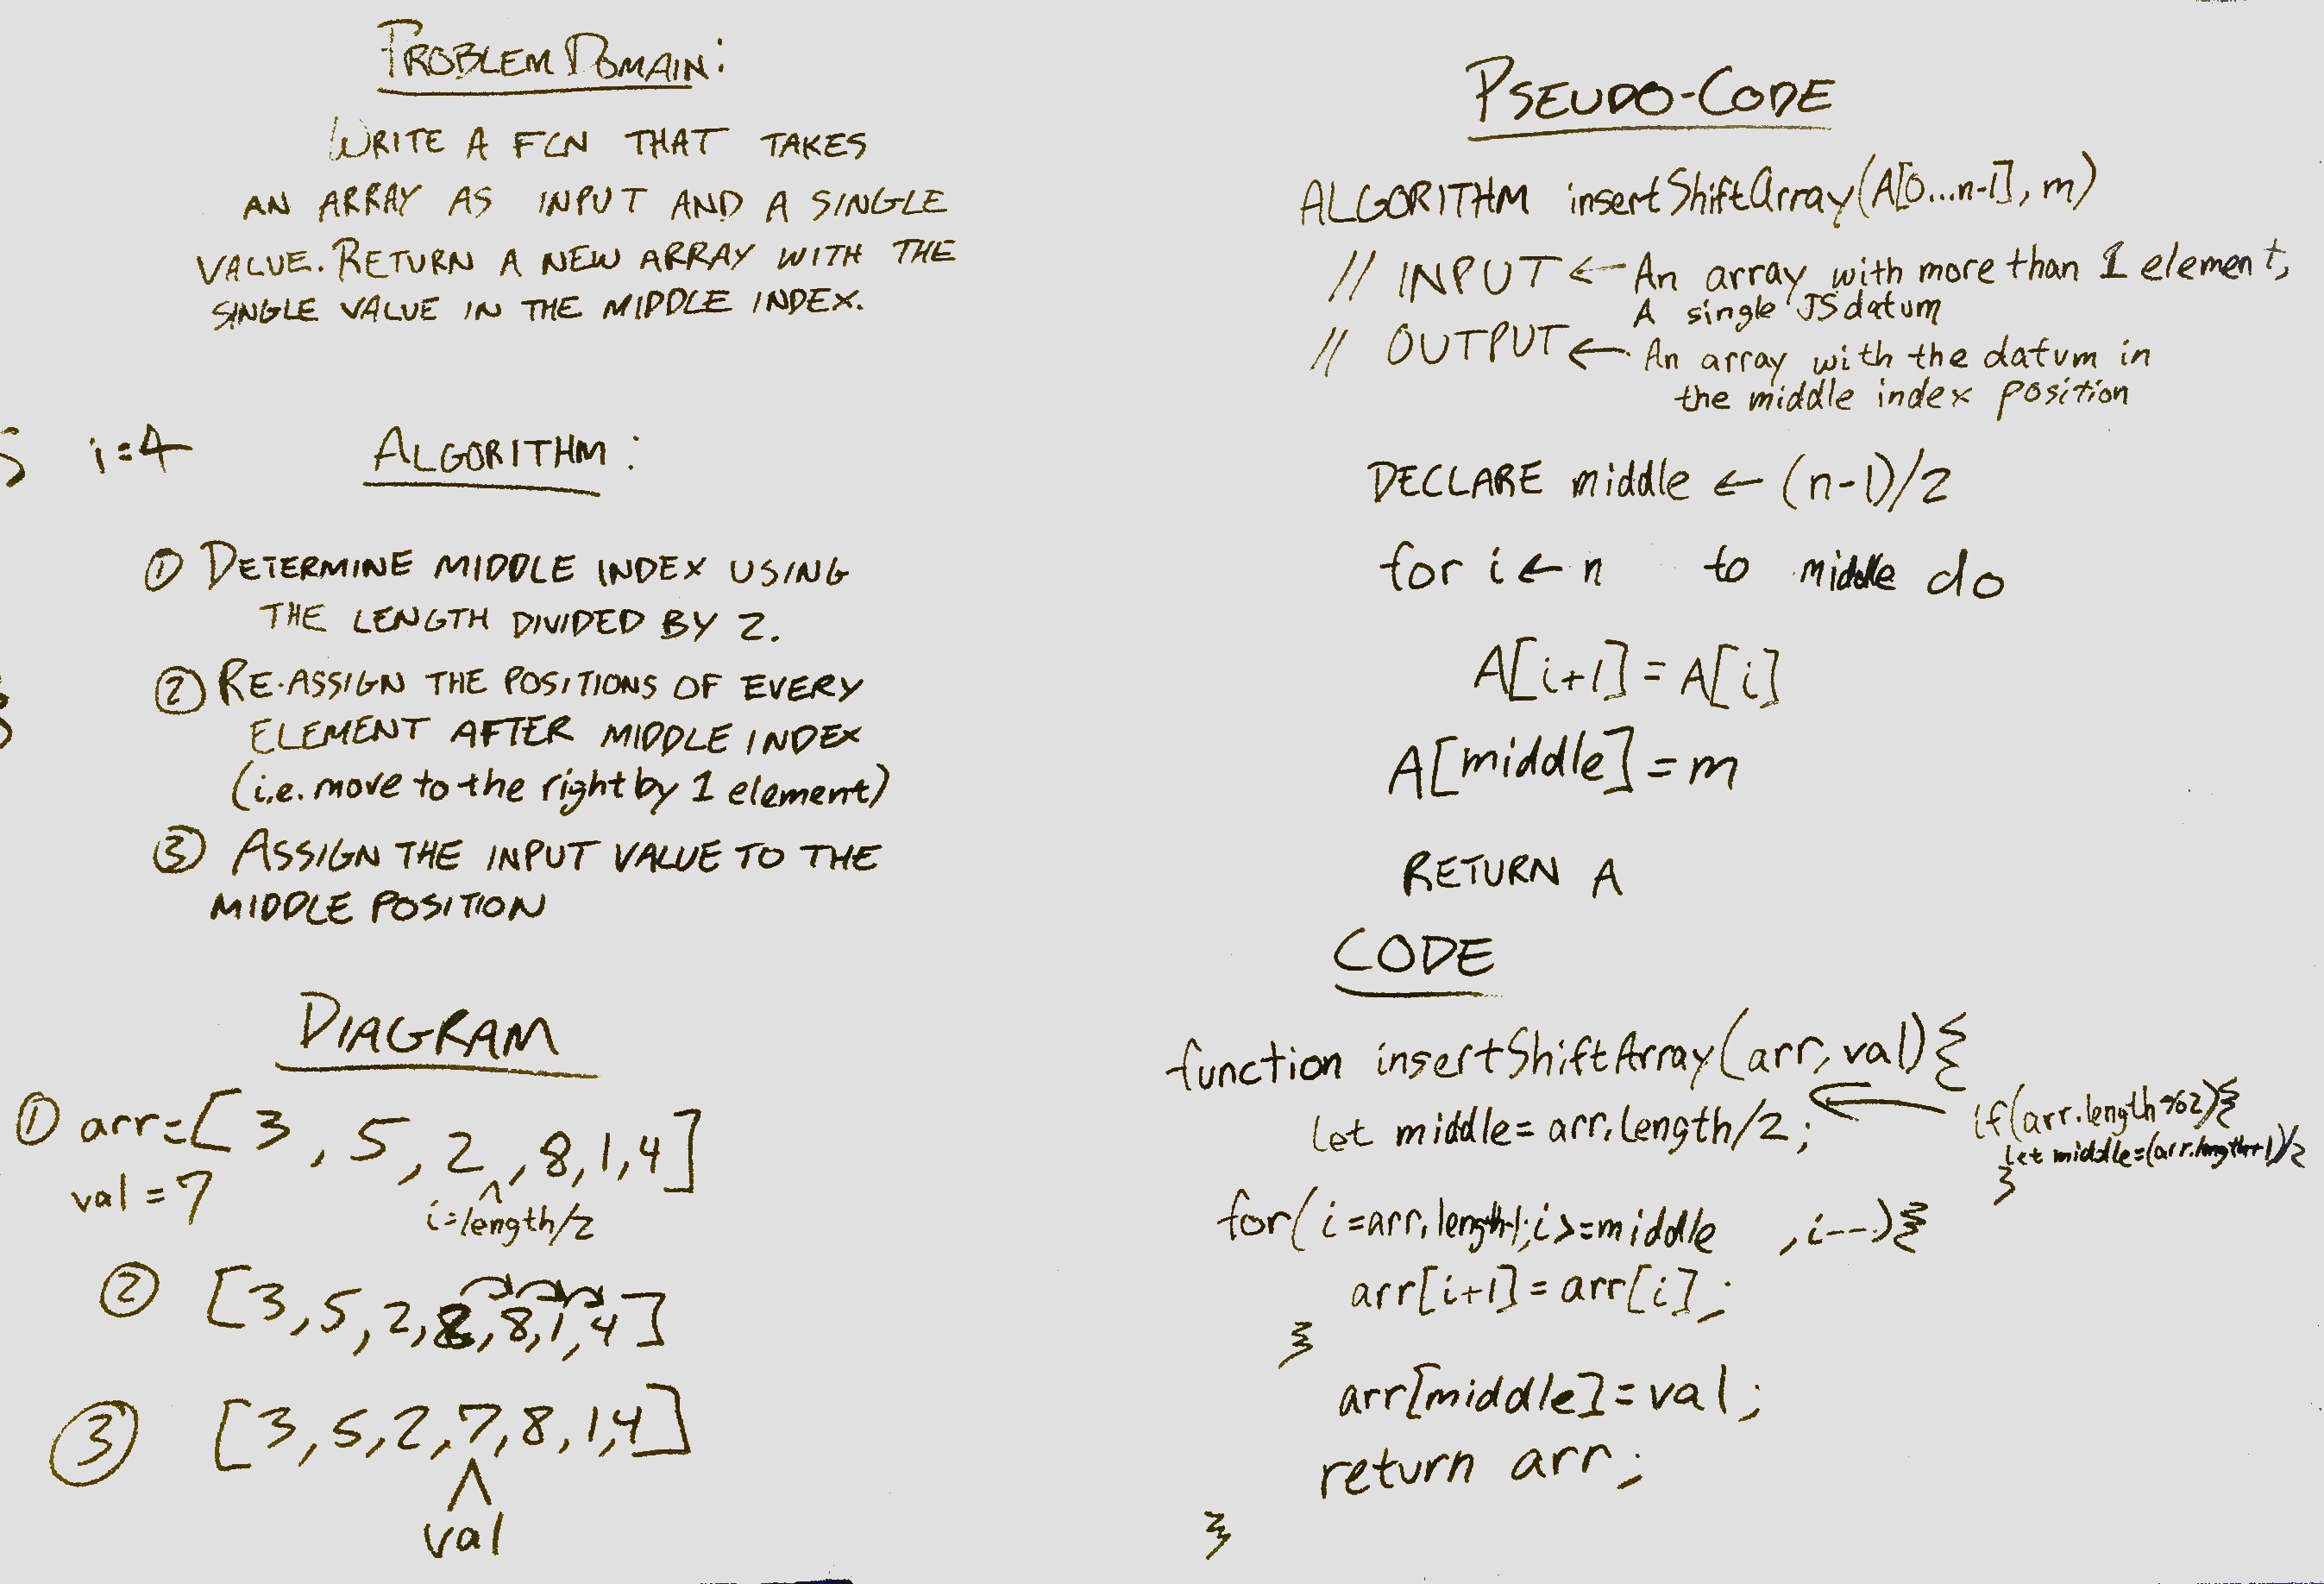 PROBLEM DOMAIN:
WRITE A FCN THAT TAKES
AN ARRAY AS INPUT AND A SINGLE
VALUE. RETURN A NEW ARRAY WITH THE
SINGLE VALUE IN THE MIDDLE INDEX.
i=4
ALGORITHM:
① DETERMINE MIDDLE INDEX USING
THE LENGTH DIVIDED BY 2.
② RE-ASSIGN THE POSITIONS OF EVERY
ELEMENT AFTER MIDDLE INDEX
(i.e. move to the right by 1 element)
③ ASSIGN THE INPUT VALUE TO THE
MIDDLE POSITION
DIAGRAM
① arr=[3, 5, 2, 8, 1, 4]
val=7
i=length/2
② [3, 5, 2, 8, 8, 1, 4]
③ [3, 5, 2, 7, 8, 1, 4]
val
PSEUDO-CODE
ALGORITHM insertShiftArray(A[0...n-1], m)
// INPUT ← An array with more than 1 element,
A single JS datum
// OUTPUT ← An array with the datum in
the middle index position
DECLARE middle ← (n-1)/2
for i ← n to middle do
A[i+1] = A[i]
A[middle] = m
RETURN A
CODE
function insertShiftArray(arr, val){
let middle = arr.length/2;
if(arr.length%2){
let middle=(arr.length+1)/2
}
for(i=arr.length-1; i>=middle , i--){
arr[i+1] = arr[i];
}
arr[middle] = val;
return arr;
}